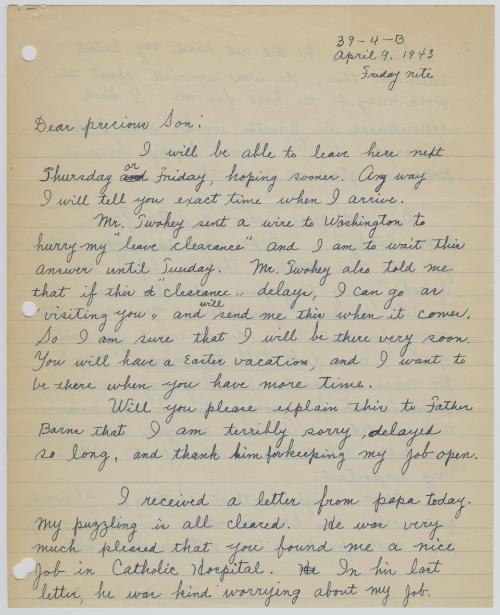 39-4-B
April 9, 1943
Friday nite
Dear precious Son!
I will be able to leave here next
Thursday or Friday, hoping sooner. Any way
I will tell you exact time when I arrive.
Mr. Twohey sent a wire to Washington to
hurry my "leave clearance" and I am to wait this
answer until Tuesday. Mr. Twohey also told me
that if this "clearance" delays, I can go as
"visiting you" and will send me this when it comes.
So I am sure that I will be there very soon.
You will have a Easter vacation, and I want to
be there when you have more time.
Will you please explain this to Father
Barns that I am terribly sorry, delayed
so long, and thank him for keeping my job open.
I received a letter from papa today.
My puzzling is all cleared. He was very
much pleased that you found me a nice
job in Catholic Hospital. In his last
letter, he was kind worrying about my job.